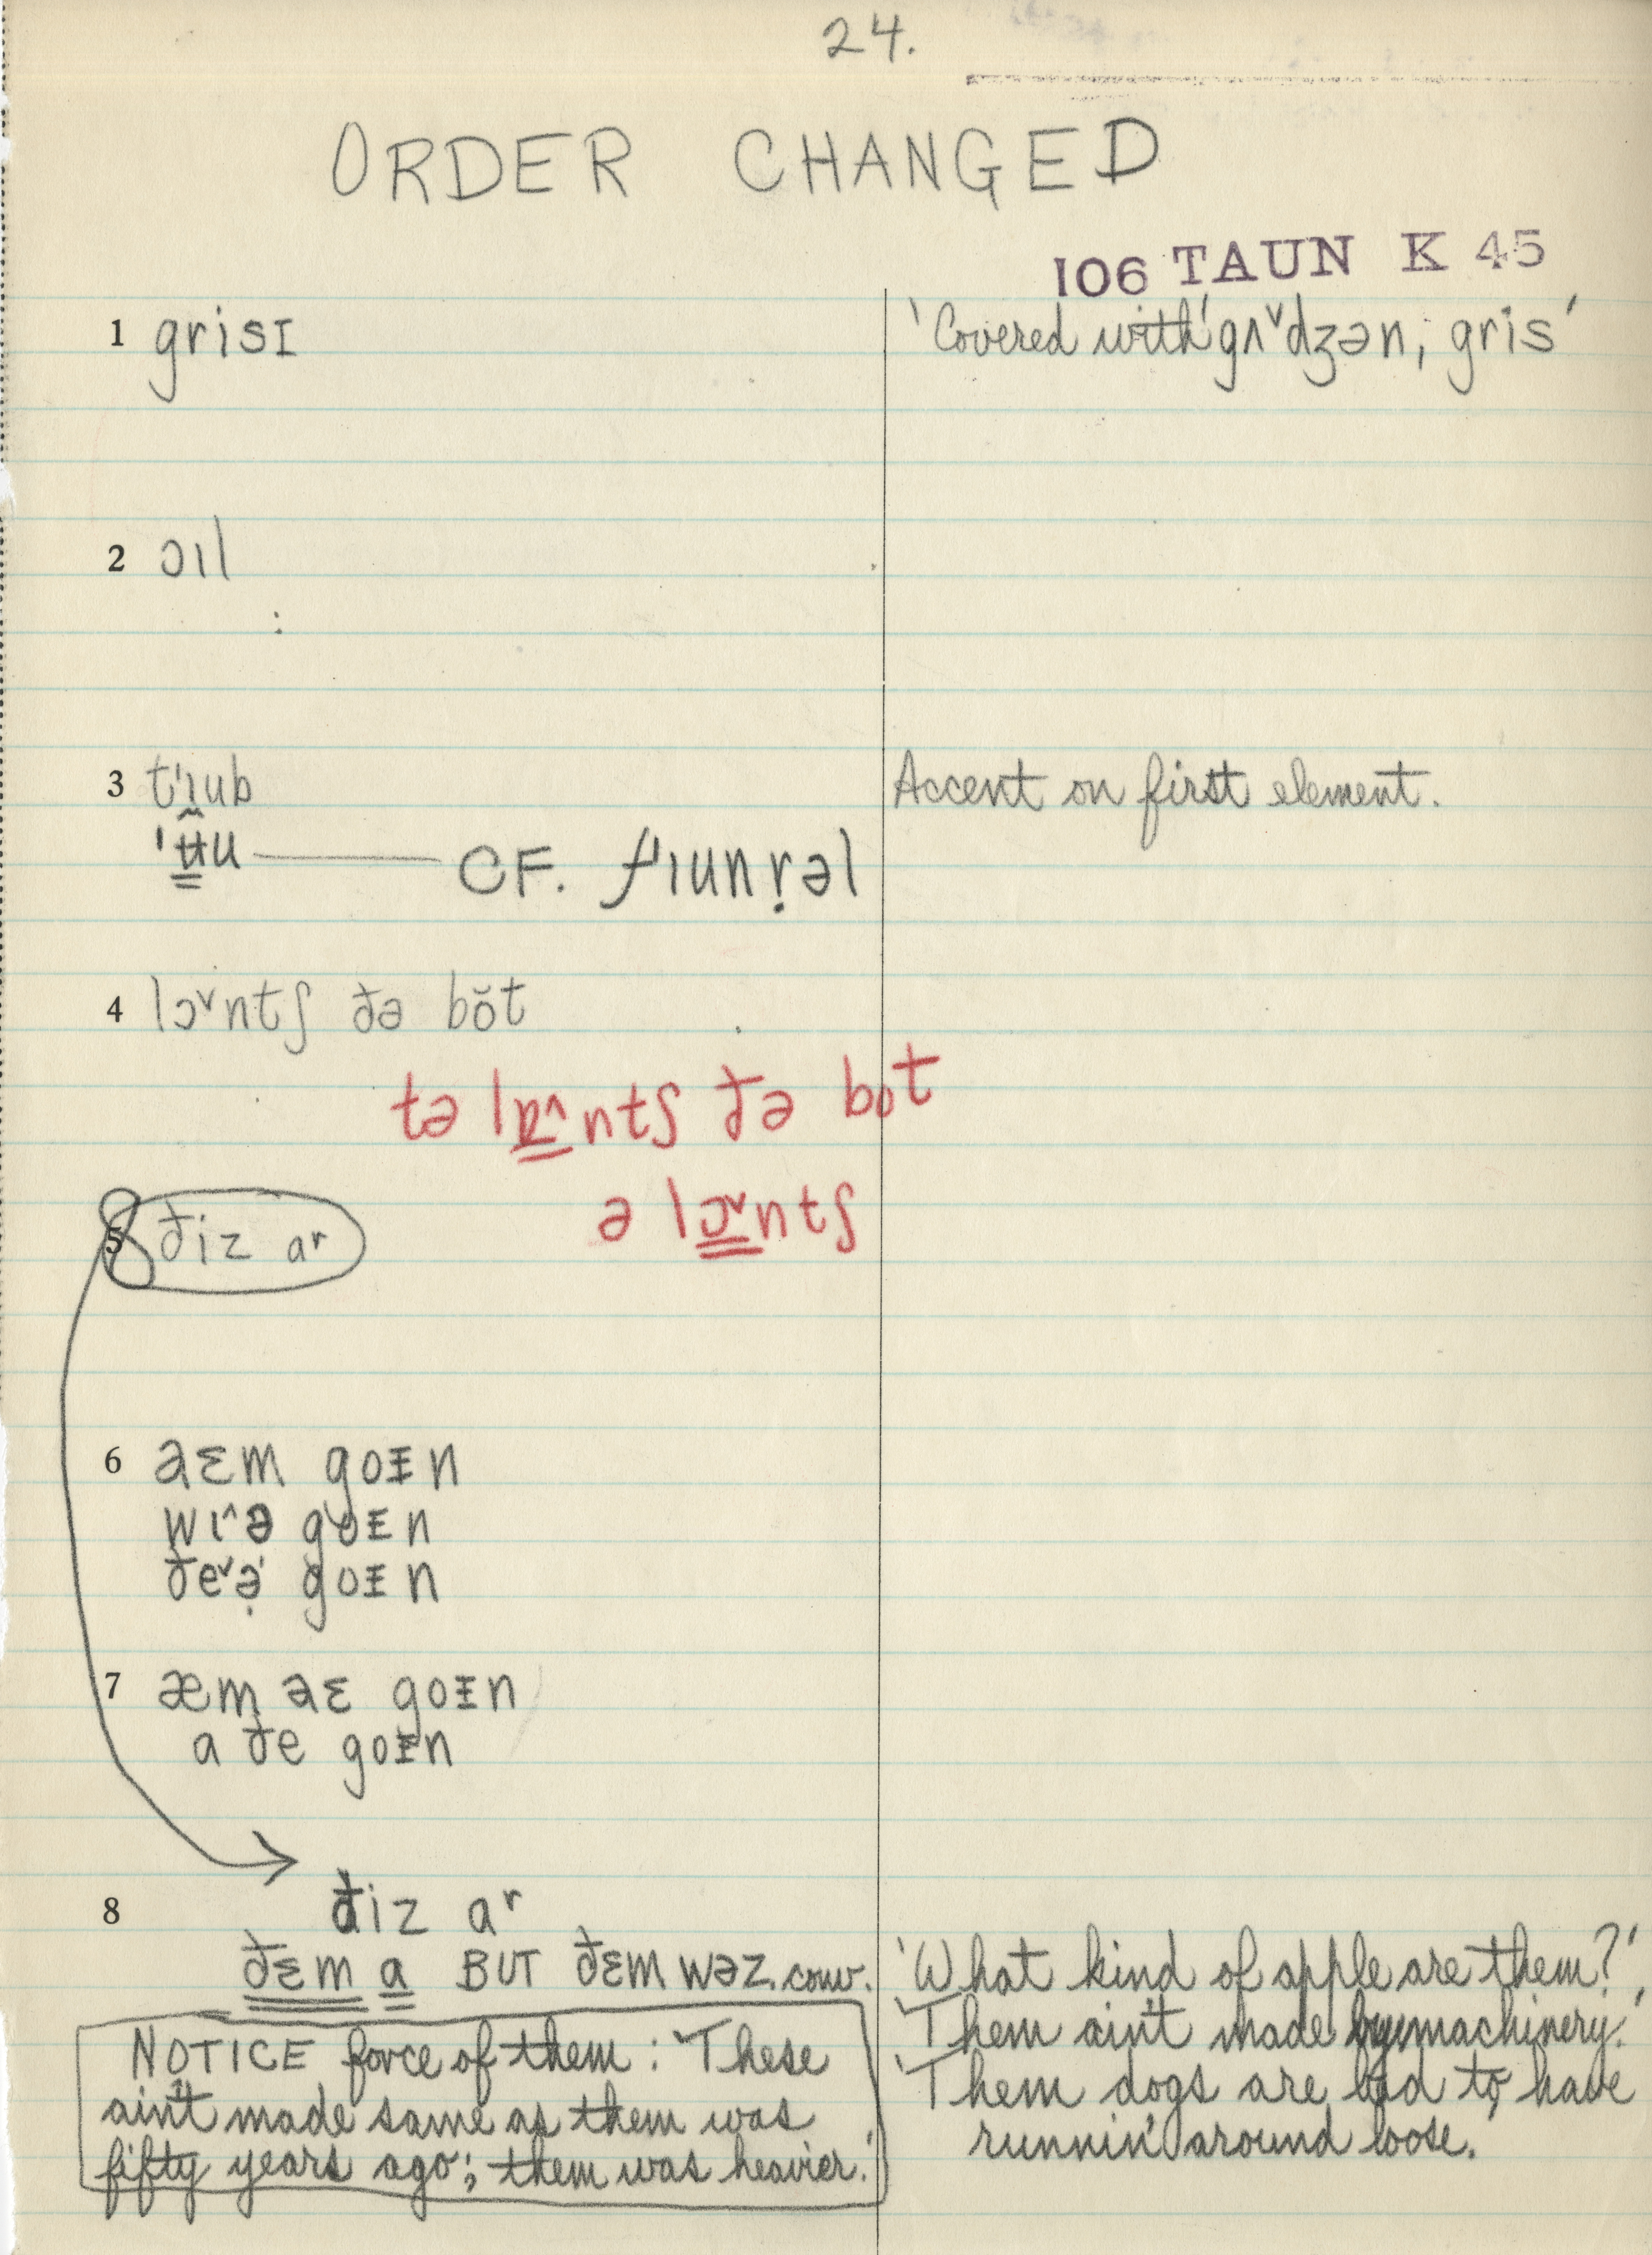 24.
ORDER CHANGED
106 TAUN K 45
1 grisɪ 'Covered with' gʌ˅dʒən; gris'
2 ɔɪl
3 t'ɪ̯ub Accent on first element.
'ʉu — CF. f'ɪunṛəl
4 lɔ˅ntʃ ðə bŏt
tə lɒ^ntʃ ðə bot
ə lɔ˅ntʃ
5 ðiz aʳ
6 aɛm goᵻn
wɪ^ə goᵻn
ðe˅ə̣ goᵻn
7 æm aɛ goᵻn
a ðe goᵻn
8 ðiz aʳ
ðɛm a BUT ðɛm wəz. conv. 'What kind of apple are them?'
'Them ain't made by machinery.'
NOTICE force of them: 'These 'Them dogs are bad to have
ain't made same as them was runnin' around loose.'
fifty years ago; them was heavier.'